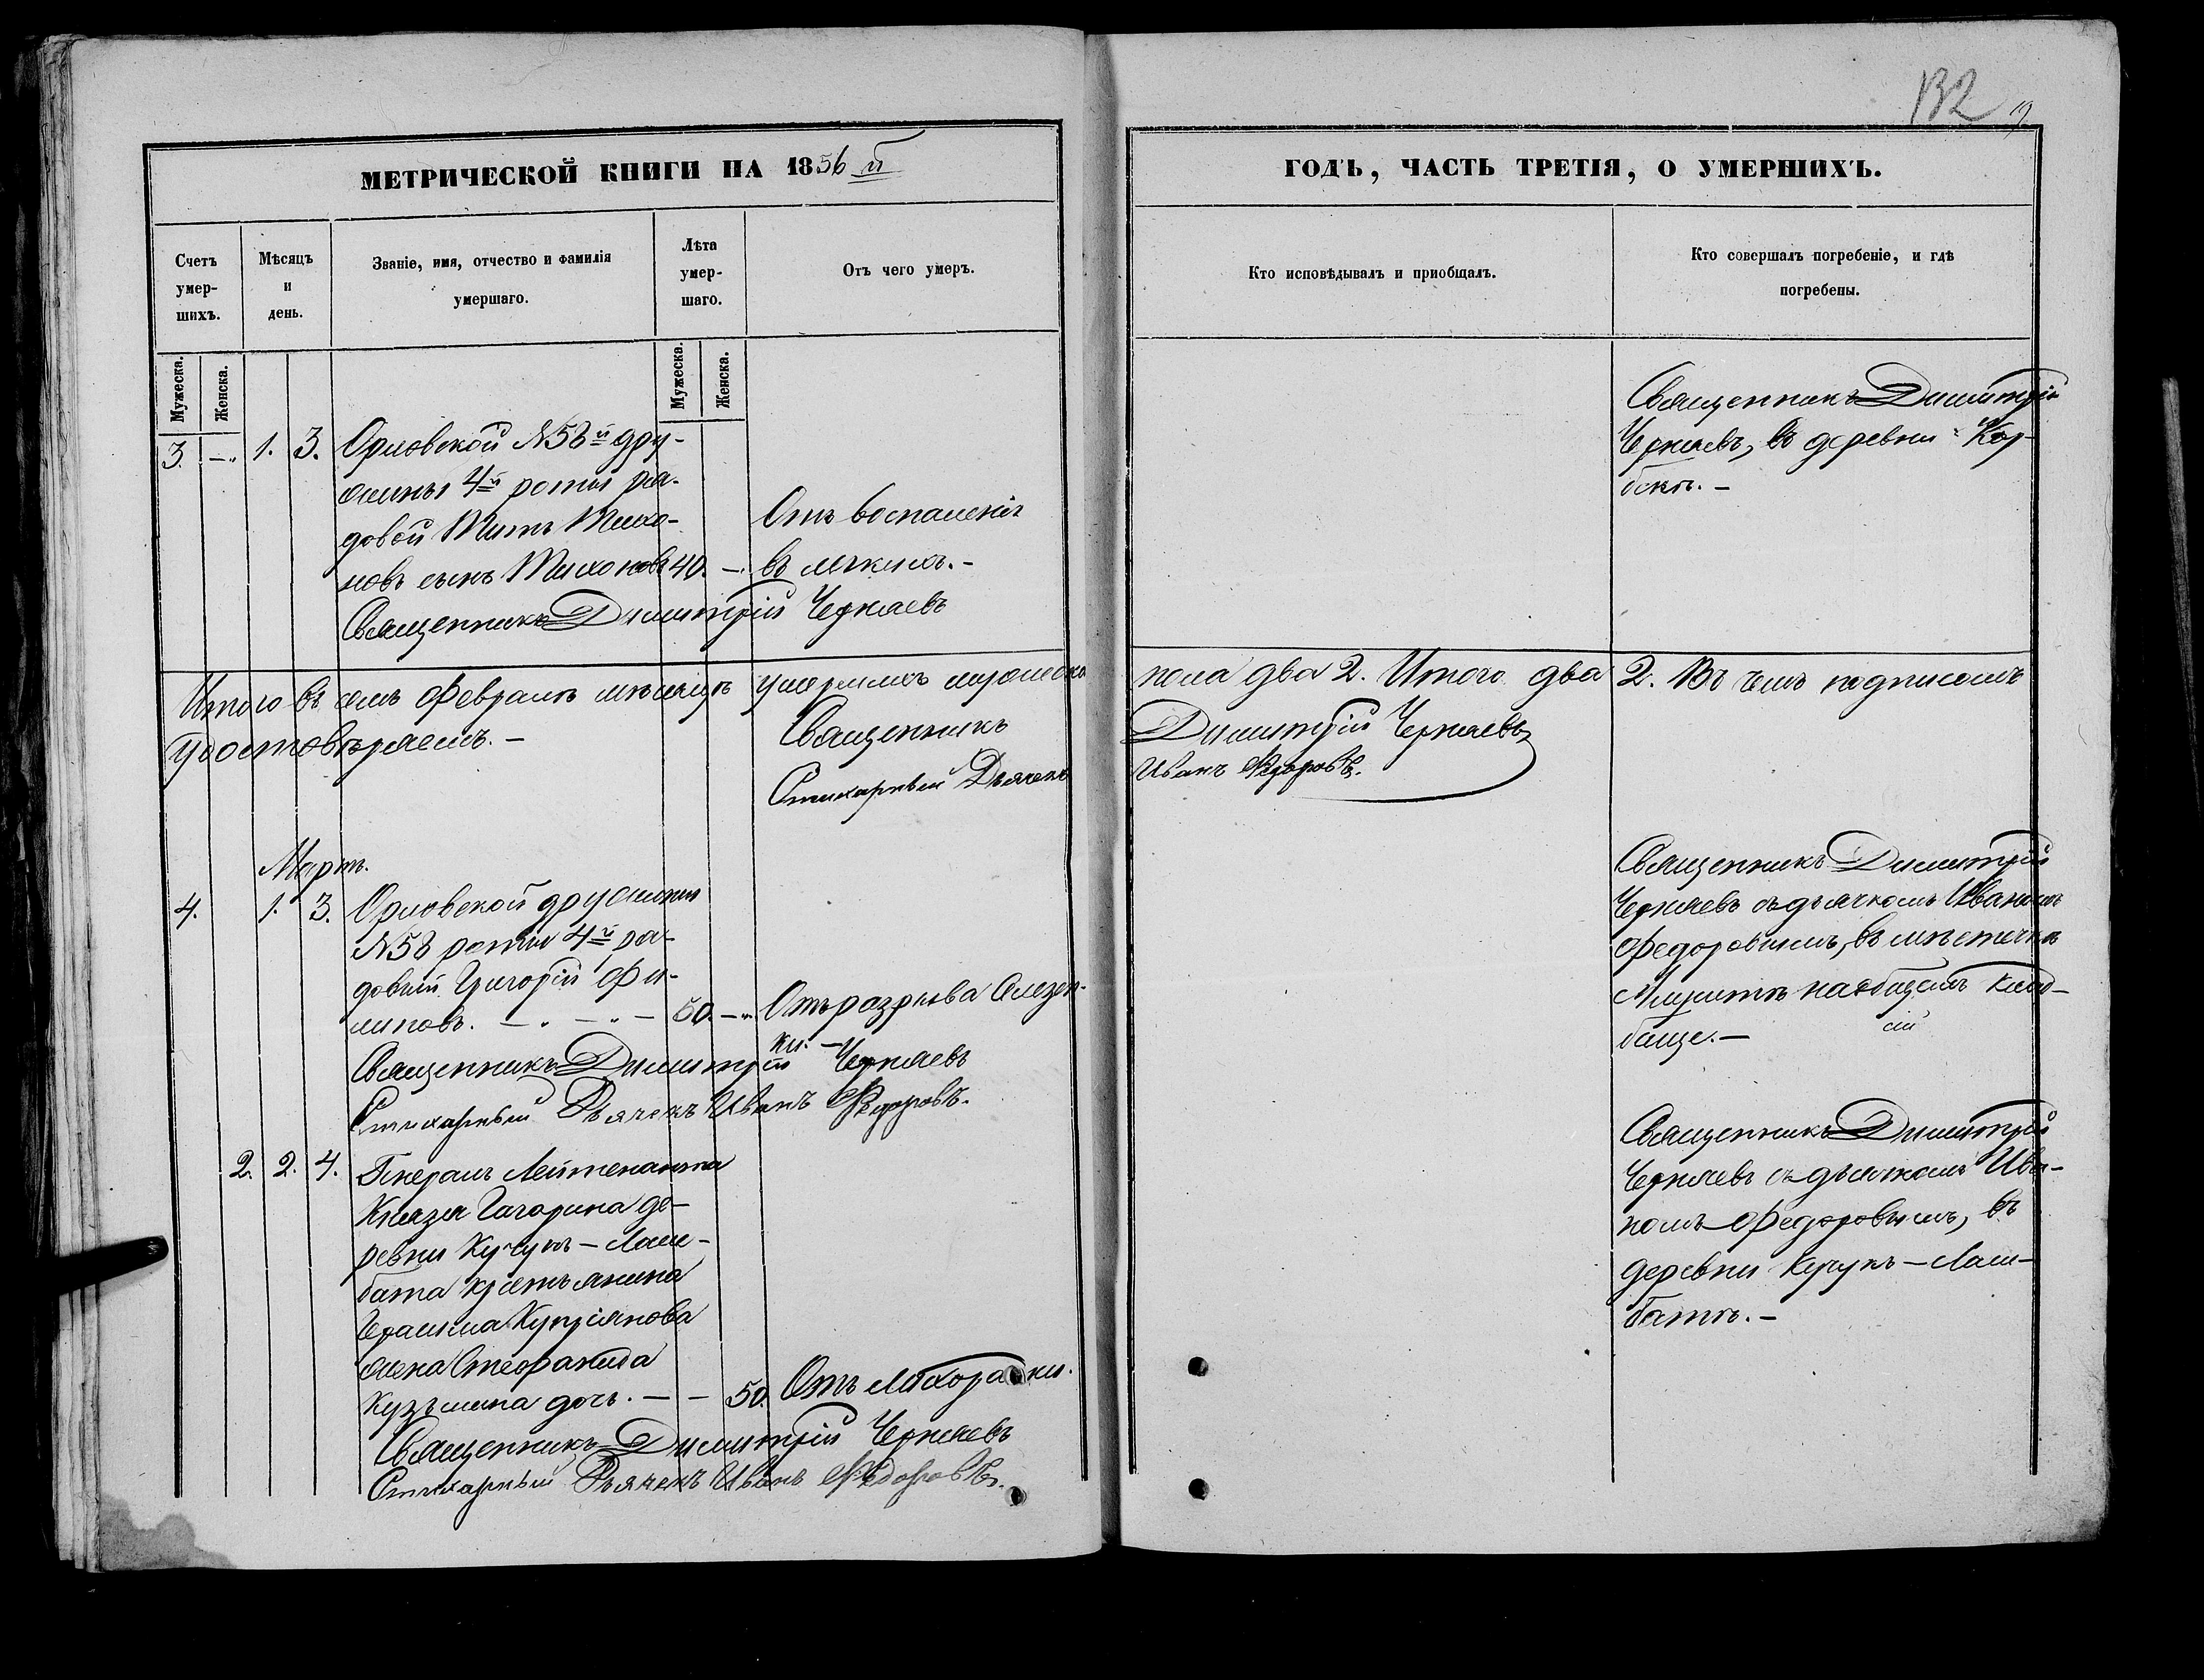 132
МЕТРИЧЕСКОЙ КНИГИ НА 1856й
ГОДЪ, ЧАСТЬ ТРЕТІЯ, О УМЕРШИХЪ.
Счетъ умер-
шихъ.
Мѣсяцъ
и
день.
Званіе, имя, отчество и фамилія
умершаго.
Лѣта
умер-
шаго.
Отъ чего умеръ.
Кто исповѣдывалъ и приобщалъ.
Кто совершалъ погребеніе, и гдѣ
погребены.
Мужеска.
Женска.
Мужеска.
Женска.
3. —. 1. 3. Орловской №58й дру-
жины 4й роты ря-
довой Титъ Тихо-
новъ сынъ Тихоновъ 40. —.
Отъ воспаленія
въ легкихъ.-
Священникъ Димитрій Черняевъ
Священникъ Димитрій
Черняевъ, въ деревни Кор-
бекъ.-
Итого въ семъ Февралѣ мѣсяцѣ умершихъ мужеска пола два 2. Итого два 2. Въ чемъ подписомъ
удостовѣряемъ.-
Священникъ Димитрій Черняевъ
Стихарный Дьячекъ Иванъ Федоровъ.
Мартъ.
4. 1. 3. Орловской дружины
№58 роты 4й ря-
довый Григорій Фи-
липовъ. — . — . — 50. —.
Отъ разрыва Селезен-
ки.-
Священникъ Димитрій Черняевъ
Стихарный Дьячекъ Иванъ Федоровъ.
Священникъ Димитрій
Черняевъ съ дьячкомъ Иваномъ
Федоровымъ, въ мѣстечкѣ
на общемъ клад-
бище.-
2. 2. 4. Генералъ Лейтенанта
Князя Гагарина де-
ревни Кучукъ-Лам-
бата крестьянина
Герасима Купріянова
жена Стефанида
Кузьмина дочь. — — 50.
Отъ лихорадки.
Священникъ Димитрій Черняевъ
Стихарный Дьячекъ Иванъ Федоровъ.
Священникъ Димитрій
Черняевъ съ дьячкомъ Ива-
номъ Федоровымъ, въ
деревни Кучукъ-Лам-
батѣ.-